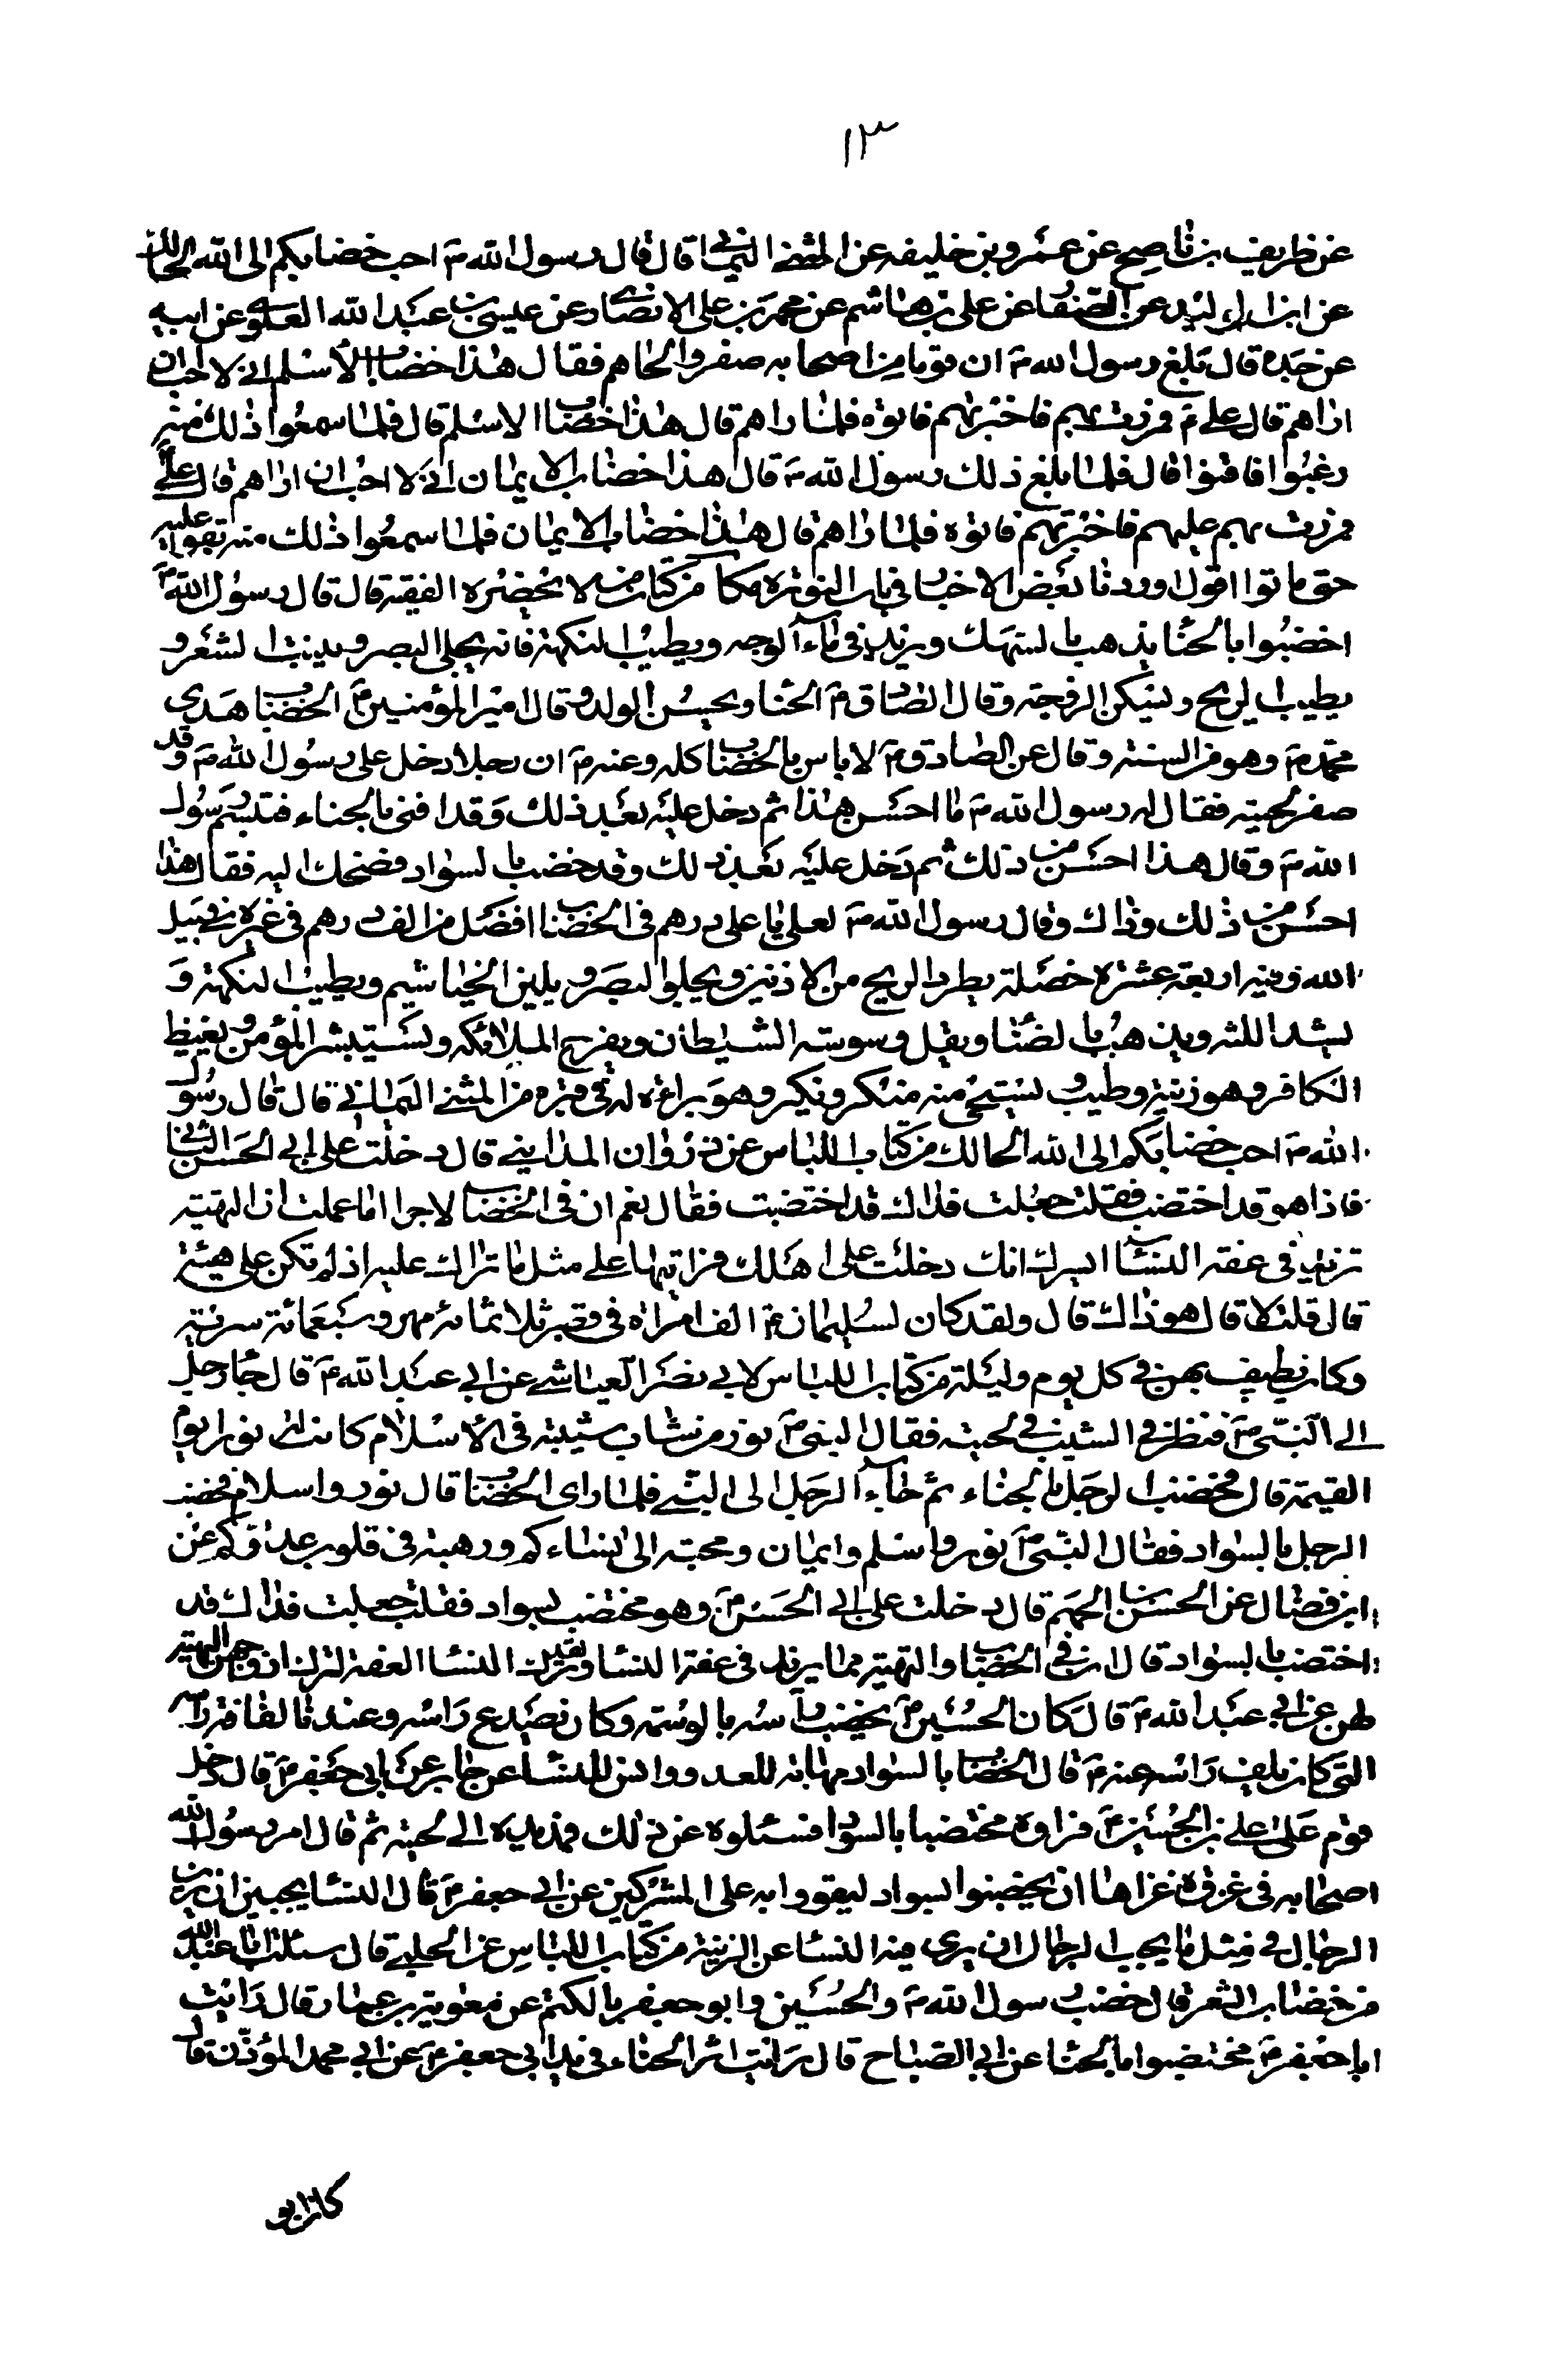 ١٣
عن ظريف بن ناصح عن عمرو بن خليفه عن المثنى اليمانى قال قال رسول الله ص احب خضابكم الى الله الحالك
عن ابن الوليد عن الصفار عن على بن هاشم عن محمد بن على الانصارى عن عيسى بن عبد الله العلوى عن ابيه
عن جده قال بلغ رسول الله ص ان قوما من اصحابه صفروا لحاهم فقال هذا خضاب الاسلم انى لا احب ان
اراهم قال على م فمررت بهم فاخبرتهم فاتوه فلما راهم قال هذا خضاب الاسلم قال فلما سمعوا ذلك منه
رغبوا فاقنوا قال فلما بلغ ذلك رسول الله ص قال هذا خضاب الايمان انى لا احب ان اراهم قال على
فمررت بهم عليهم فاخبرتهم فاتوه فلما راهم قال هذا خضاب الايمان فلما سمعوا ذلك منه بقوا عليه
حتى ماتوا اقول اوردنا بعض الاخبار فى باب النوره من كتاب من لا يحضره الفقيه قال قال رسول الله ص
اخضبوا بالحنا يذهب بالسهك ويزيد فى ماء الوجه ويطيب النكهة فانه يجلى البصر وينبت الشعر و
يطيب الريح ويسكن الزوجة وقال الصادق م الحنا ويحسن الولد وقال امير المؤمنين م الخضاب هدى
محمد ص وهو من السنة وقال عن الصادق م لا باس بالخضاب كله وعنه م ان رجلا دخل على رسول الله ص وقد
صفر لحيته فقال له رسول الله ص ما احسن هذا ثم دخل عليه بعد ذلك وقد اقنى بالحناء فتبسم رسول
الله ص وقال هذا احسن من ذلك ثم دخل عليه بعد ذلك وقد خضب بالسواد فضحك اليه فقال هذا
احسن من ذلك وذاك وقال رسول الله ص لعلى يا على درهم فى الخضاب افضل من الف درهم فى غيره فى سبيل
الله وفيه اربعة عشرة خصلة يطرد الريح من الاذنين ويجلوا البصر ويلين الخياشيم ويطيب النكهة و
يشد اللثه ويذهب بالضنا ويقل وسوسته الشيطان ويفرح الملائكه ويستبشر المؤمن ويغيظ
الكافر وهو زينة وطيب ويستحى منه منكر ونكير وهو براءة له فى قبره من المثنى اليمانى قال قال رسول
الله ص احب خضابكم الى الله الحالك من كتاب اللباس عن ذروان المداينى قال دخلت على ابى الحسن الثانى
فاذا هو قد اختضب فقلت جعلت فداك قد اختضبت فقال نعم ان فى الخضاب لاجرا اما علمت ان التهيئة
تزيد فى عفة النساء ايسرك انك دخلت على اهلك فراتيها على مثل ما تراك عليه اذ لم تكن على هيئة
قال قلت لا قال هو ذاك قال ولقد كان لسليمان م الف امراة فى قصر ثلاثمائة مهر وسبعمائة سرية
وكان يطيف بهن فى كل يوم وليلة من كتاب اللباس لابى نضر العياشى عن ابى عبد الله م قال جاء رجل
الى النبى ص فنظر فى الشيب فى لحيته فقال النبى ص نور من شاب شيبة فى الاسلام كانت له نورا يوم
القيمة قال فخضب الرجل بالحناء ثم جاء الرجل الى النبى فلما راى الخضاب قال نور واسلام فخضب
الرجل بالسواد فقال النبى ص نور واسلم وايمان ومحبة الى نساءكم ورهبة فى قلوب عدوكم عن
ابن فضال عن الحسن بن الجهم قال دخلت على ابى الحسن م وهو مختضب بسواد فقلت جعلت فداك قد
اختضب بالسواد قال ان فى الخضاب والتهيئة مما يزيد فى عفة النساء النساء العفة لترك ازواجهن التهيئة
لهن عن ابى عبد الله م قال كان الحسين م يخضب راسه بالوسمه وكان يصدع راسه وعندنا لفافة راسه
التى كان يلف راسه وعنه م قال الخضاب بالسواد مهابة للعدو وانس للنساء عن جابر عن ابى جعفر م قال دخل
قوم على على بن الحسين م فراوه مختضبا بالسواد فسئلوه عن ذلك فمد يده الى لحيته ثم قال امر رسول الله
اصحابه فى غزوة غزاها ان يخضبوا بالسواد ليقووا به على المشركين عن ابى جعفر م قال النساء يحببن ان يرين
الرجال فى مثل ما يحب الرجال ان يرى فيه النساء من الزينة من كتاب اللباس عن الحلبى قال سئلت ابا عبد الله
من خضاب الشعر قال خضب رسول الله ص والحسين وابو جعفر بالكتم عن معوية بن عمار قال رايت
ابا جعفر م مختضبوا بالحناء عن ابى الصباح قال رايت اثر الحناء فى يد ابى جعفر م عن ابى محمد المؤذن قال
كان ابو